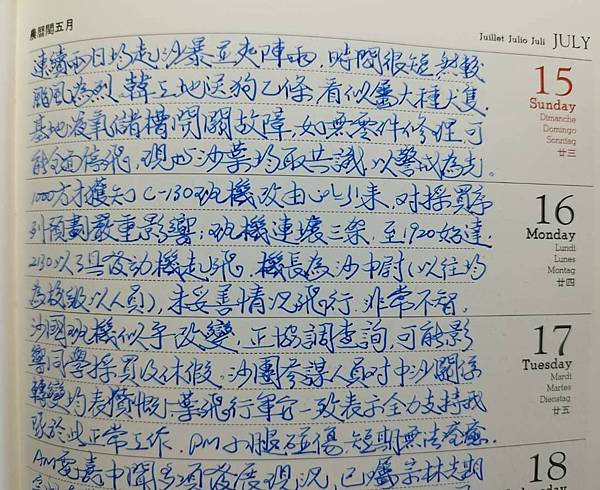 農曆閏五月
Juillet Julio Juli JULY
連續兩日均起沙暴並夾陣雨,時間很短,然較
颱風為烈,韓工地送狗乙條,看似屬大種犬隻.
基地液氧儲槽開關故障,如無零件修理,可
能全面停飛,現與沙葉均取共識,以警戒為先.
15
Sunday
Dimanche
Domingo
Sonntag
廿三
1000方才獲知C-130班機改由 來,對採買
列預劃嚴重影響;班機連壞三架,至1920始達.
2130以3具發動機起飛,機長為沙中尉(以往均
為校級以人員),未妥善情況飛行,非常不智.
16
Monday
Lundi
Lunes
Montag
廿四
沙國班機似乎改變,正協調查詢,可能影
響同學採買及休假.沙團參謀人員對中沙關係
轉變均表憤慨,葉飛行軍官 致表示全力支持我
隊於此正常工作.PM小腿碰傷,短期無法痊癒.
17
Tuesday
Mardi
Martes
Dienstag
廿五
AM 中 各項發展現況,已屬 林
18